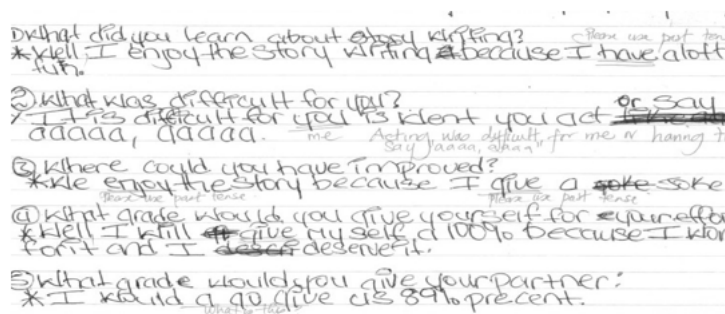 1) What did you learn about story writing? Please use past ten
* Well I enjoy the story writing because I have alott
fun.
② What was difficult for you? or say
It is difficult for you is went you act
aaaaa, aaaaa. me Acting was difficult for me or having t
say "aaaa, aaaa"
③ Where could you have improved?
* We enjoy the story because I give a soke
Please use past tense Please use past tense
④ What grade would you give yourself for your effor
* Well I will give myself a 100% because I wor
for it and I deserve it.
⑤ What grade would you give your partner:
* I would a go give as 89% precent.
what is this?